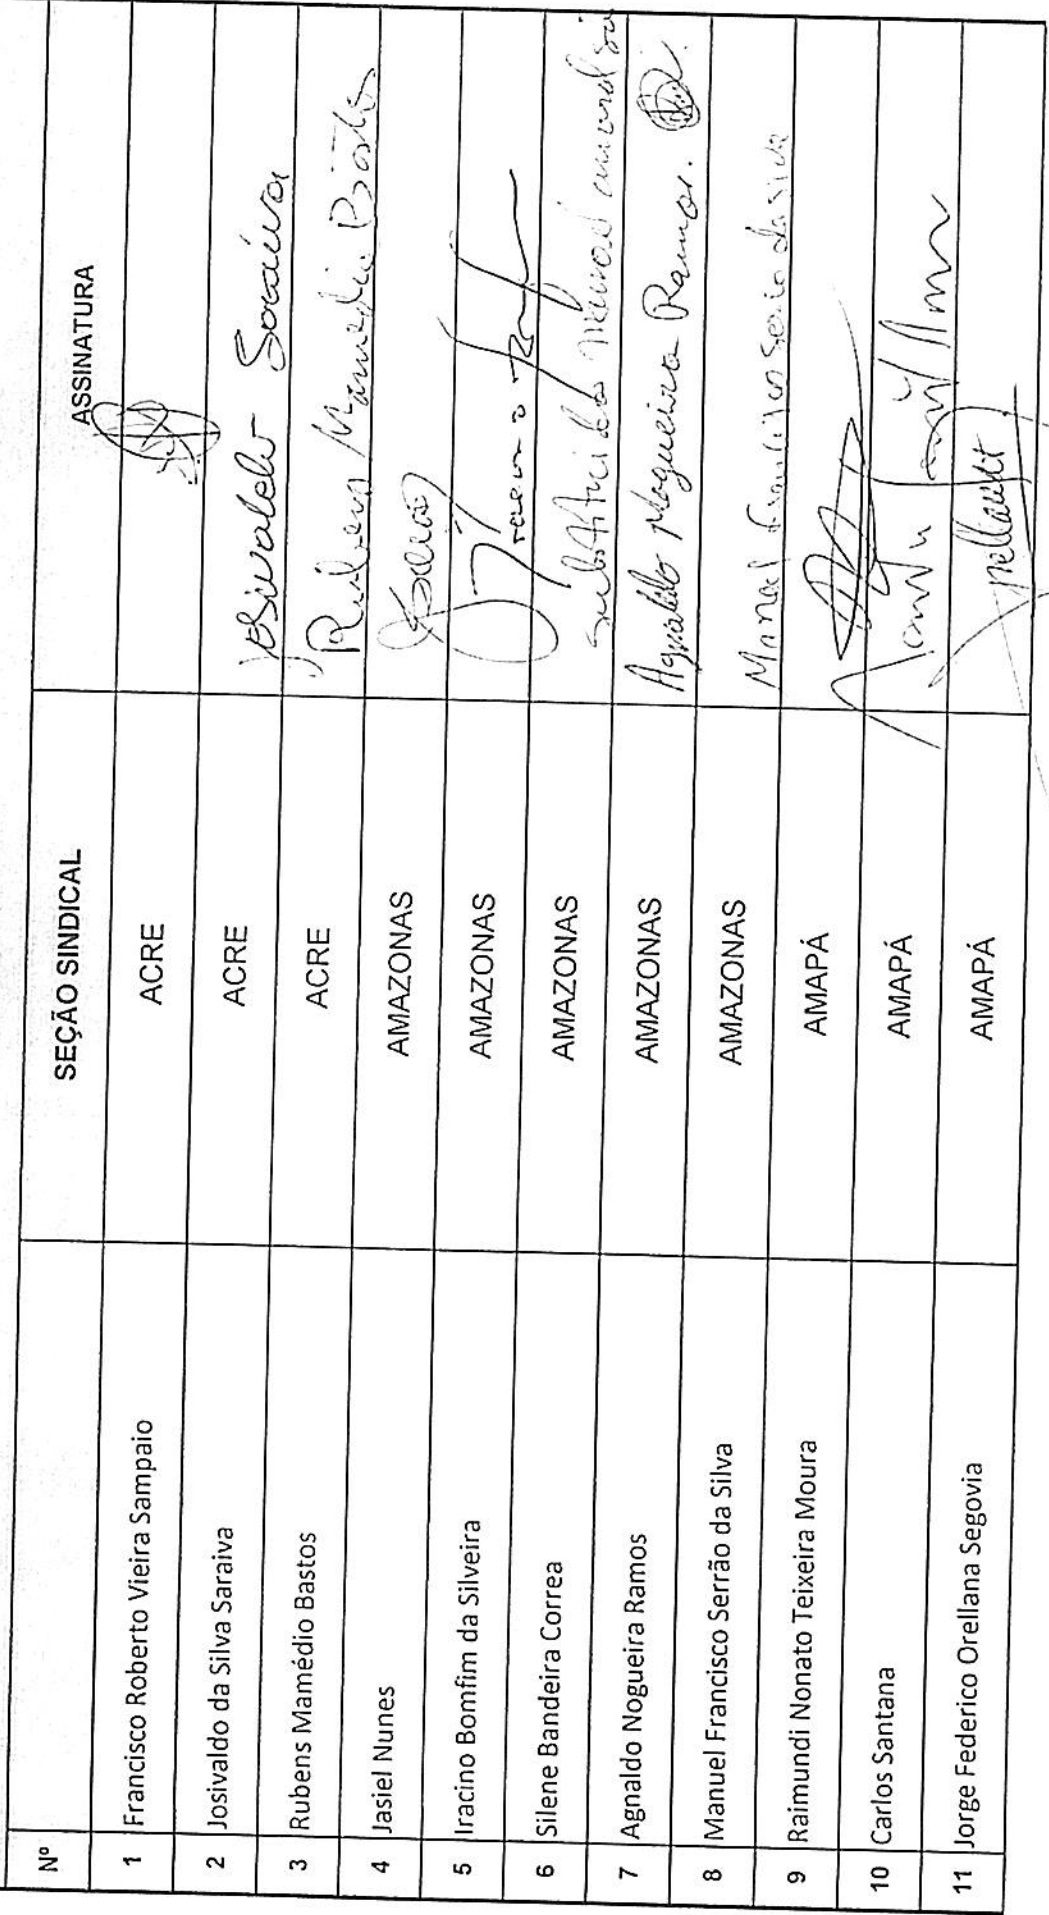 Nº SEÇÃO SINDICAL ASSINATURA
1 Francisco Roberto Vieira Sampaio ACRE
2 Josivaldo da Silva Saraiva ACRE Josivaldo Saraiva
3 Rubens Mamédio Bastos ACRE Rubens Mamédio Bastos
4 Jasiel Nunes AMAZONAS
5 Iracino Bomfim da Silveira AMAZONAS
6 Silene Bandeira Correa AMAZONAS
7 Agnaldo Nogueira Ramos AMAZONAS Agnaldo Nogueira Ramos.
8 Manuel Francisco Serrão da Silva AMAZONAS Manoel Francisco Serrão da Silva
9 Raimundi Nonato Teixeira Moura AMAPÁ
10 Carlos Santana AMAPÁ
11 Jorge Federico Orellana Segovia AMAPÁ